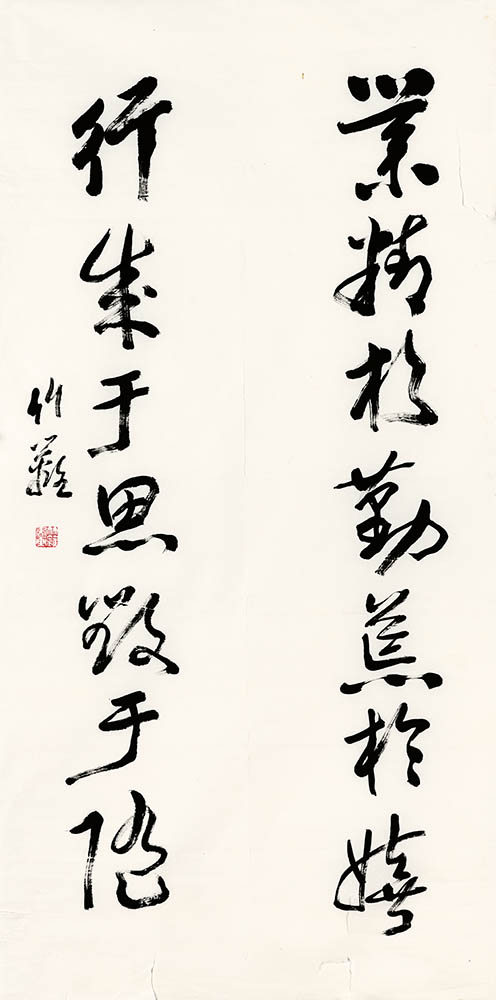 業精於勤荒於嬉
行成于思毀于隨
竹